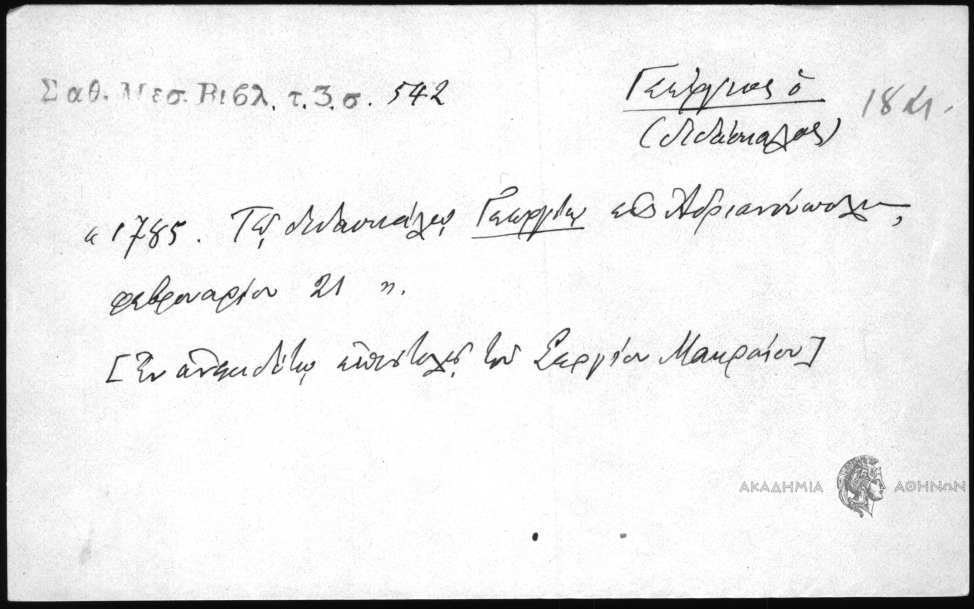 Σαθ. Μεσ. Βιβλ. τ. 3. σ. 542
Γεώργιος ὁ
(διδάσκαλος)
18 αι.
« 1785. Τῷ διδασκάλῳ Γεωργίῳ εἰς Ἀδριανούπολιν,
φεβρουαρίου 21 ".
[Ἐν ἀνεκδότῳ ἐπιστολῇ τοῦ Σεργίου Μακραίου]
ΑΚΑΔΗΜΙΑ ΑΘΗΝΩΝ